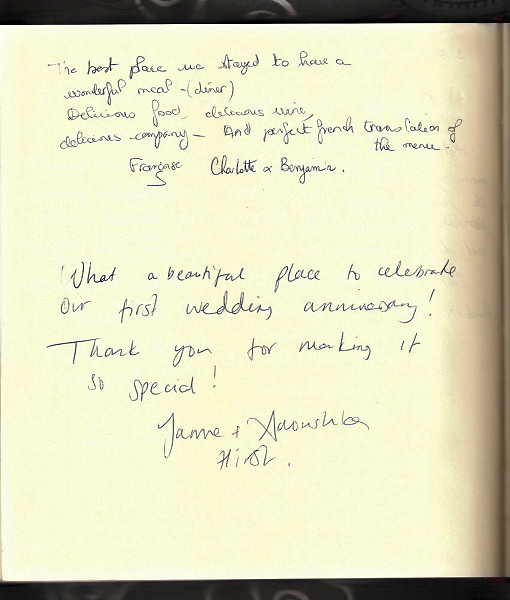 The best place we stayed to have a
wonderful meal - (diner)
Delicious food, delicious wine,
delicious company - And perfect french translation of
the menu.
Françoise Charlotte & Benjamin.
What a beautiful place to celebrate
our first wedding anniversary!
Thank you for making it
so special!
+
Hirst.